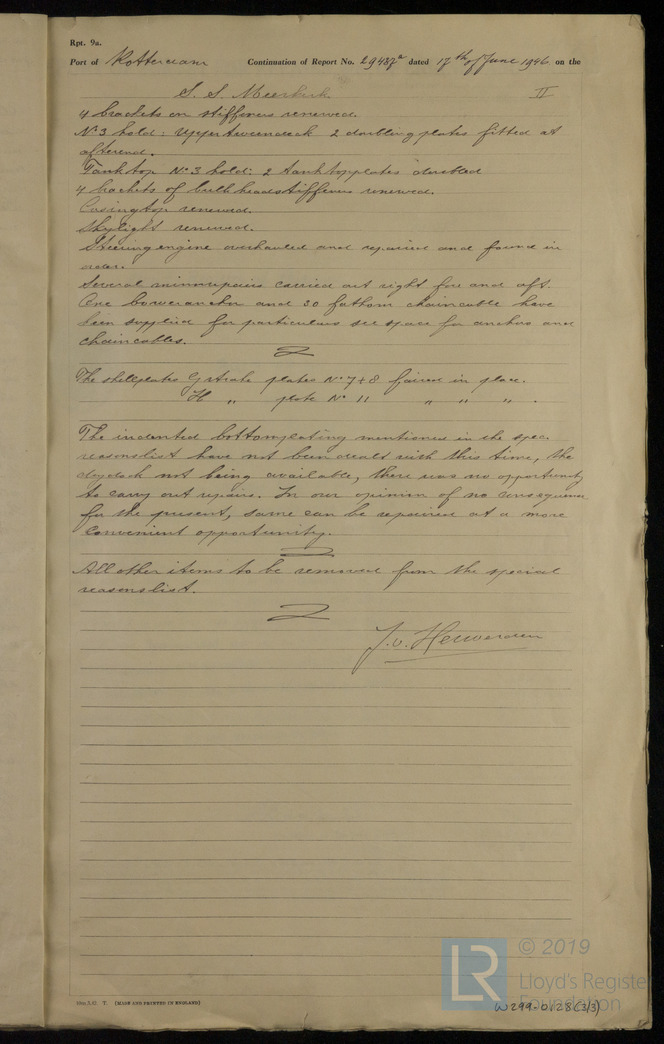 Rpt. 9a.
Port of Rotterdam Continuation of Report No. 29487a dated 17th of June 1946 on the
S. S. Meerkerk II
4 brackets on stiffeners renewed.
No 3 hold: Uppertweendeck 2 doubling plates fitted at
afterend.
Tanktop No 3 hold: 2 tanktopplates doubled
4 brackets of bulkheadstiffeners renewed.
Casingtop renewed.
Skylight renewed.
Steeringengine overhauled and repaired and found in
order.
Several minorrepairs carried out right fore and aft.
One boweranchor and 30 fathom chaincable have
been supplied for particulars see space for anchors and
chaincables.
The shellplates G strake plates No 7+8 faired in place.
H " plate No 11 " " " .
The indented bottomplating mentioned in the spec.
reasonslist have not been dealt with this time, the
drydock not being available, there was no opportunity
to carry out repairs. In our opinion of no consequence
for the present, same can be repaired at a more
convenient opportunity.
All other items to be removed from the special
reasonslist.
J. v. Herwerden
10m.5.42. T. (MADE AND PRINTED IN ENGLAND)
LR © 2019
Lloyd's Registe
Foundation
W299-0128(3/3)